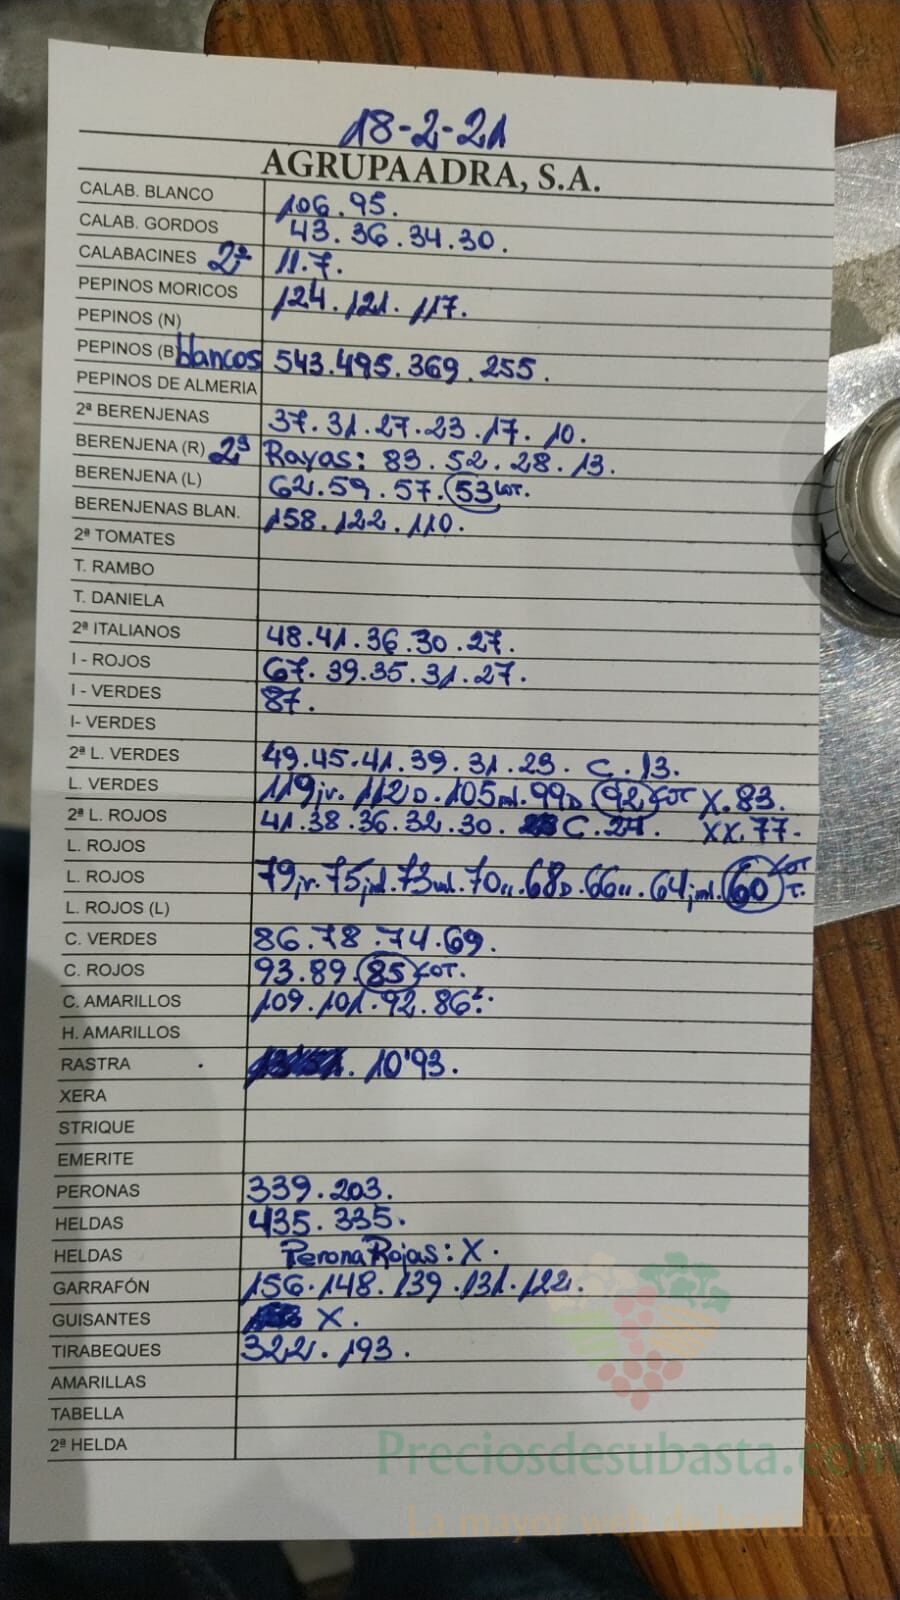 18-2-21
AGRUPAADRA, S.A.
CALAB. BLANCO 106.95.
CALAB. GORDOS 43.36.34.30.
CALABACINES 2ª 11.7.
PEPINOS MORICOS 124.121.117.
PEPINOS (N)
PEPINOS (B blancos 543.495.369.255.
PEPINOS DE ALMERIA
2ª BERENJENAS 37.31.27.23.17.10.
BERENJENA (R) 2ª Rayas: 83.52.28.13.
BERENJENA (L) 62.59.57.53 COT.
BERENJENAS BLAN. 158.122.110.
2ª TOMATES
T. RAMBO
T. DANIELA
2ª ITALIANOS 48.41.36.30.27.
I - ROJOS 67.39.35.31.27.
I - VERDES 87.
I- VERDES
2ª L. VERDES 49.45.41.39.31.23. C.13.
L. VERDES 119jr.112D.105ml.99D 92 COT X.83.
2ª L. ROJOS 41.38.36.32.30. C.27. XX.77.
L. ROJOS
L. ROJOS 79jr.75jml.73ml.70".68D.66".64jml.60 COT T.
L. ROJOS (L)
C. VERDES 86.78.74.69.
C. ROJOS 93.89.85 COT.
C. AMARILLOS 109.101.92.86
H. AMARILLOS
RASTRA . 10'93.
XERA
STRIQUE
EMERITE
PERONAS 339.203.
HELDAS 435.335.
HELDAS Perona Rojas: X.
GARRAFÓN 156.148.139.131.122.
GUISANTES X.
TIRABEQUES 322.193.
AMARILLAS
TABELLA
2ª HELDA
Preciosdesubasta.com
La mayor web de hortalizas